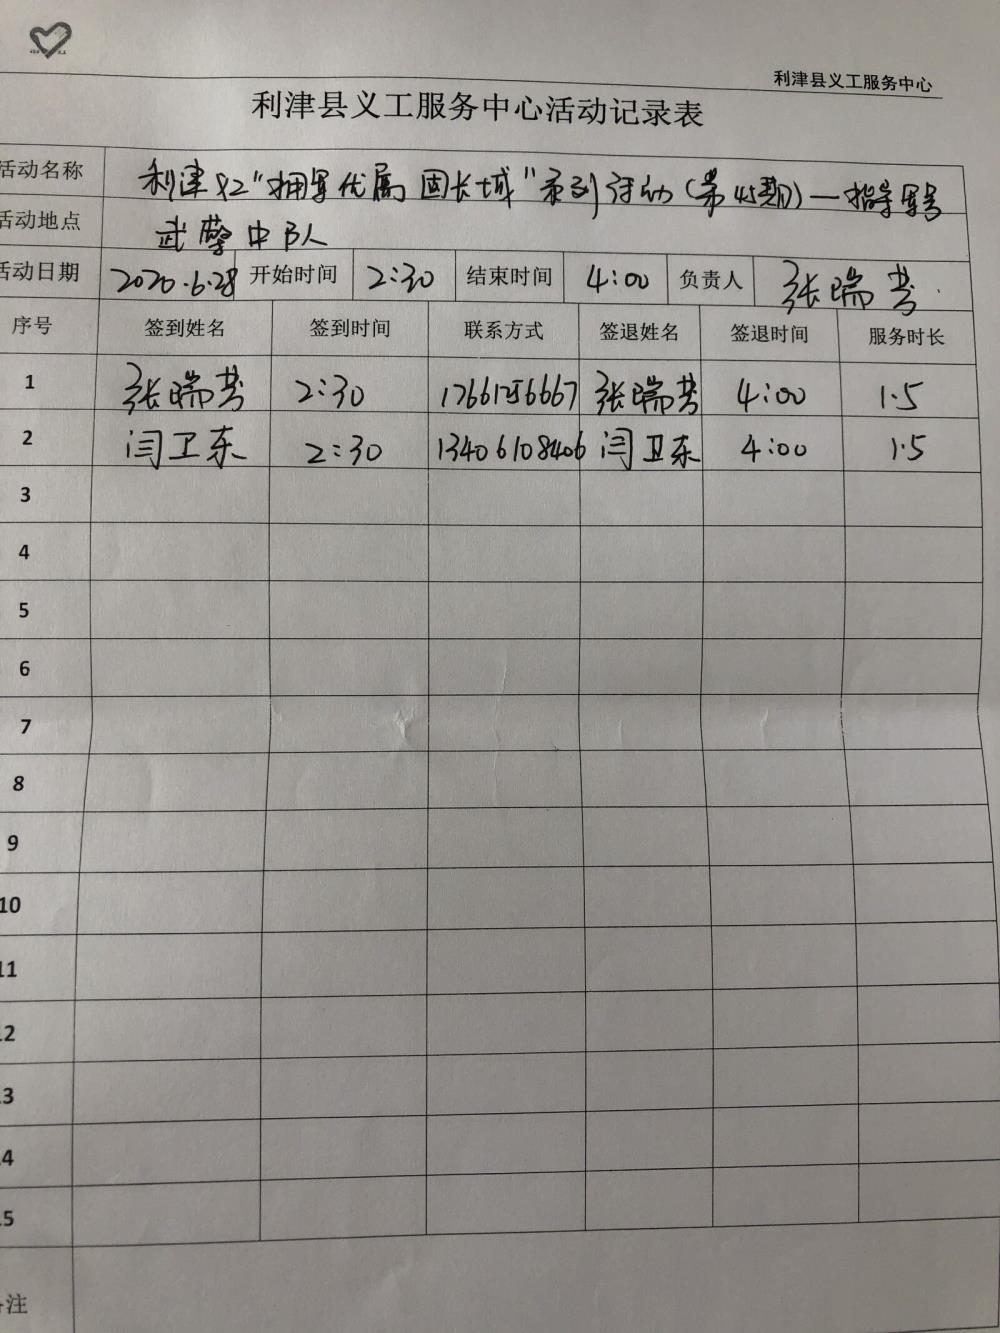 利津县义工服务中心
利津县义工服务中心活动记录表
活动名称 利津义工"拥军优属 固长城"系列活动(第45期)一指导军号
活动地点 武警中队
活动日期 2020.6.28 开始时间 2:30 结束时间 4:00 负责人 张瑞芳
序号 签到姓名 签到时间 联系方式 签退姓名 签退时间 服务时长
1 张瑞芳 2:30 张瑞芳 4:00 1.5
2 闫卫东 2:30 13406108406 闫卫东 4:00 1.5
3
4
5
6
7
8
9
10
11
12
13
14
15
备注